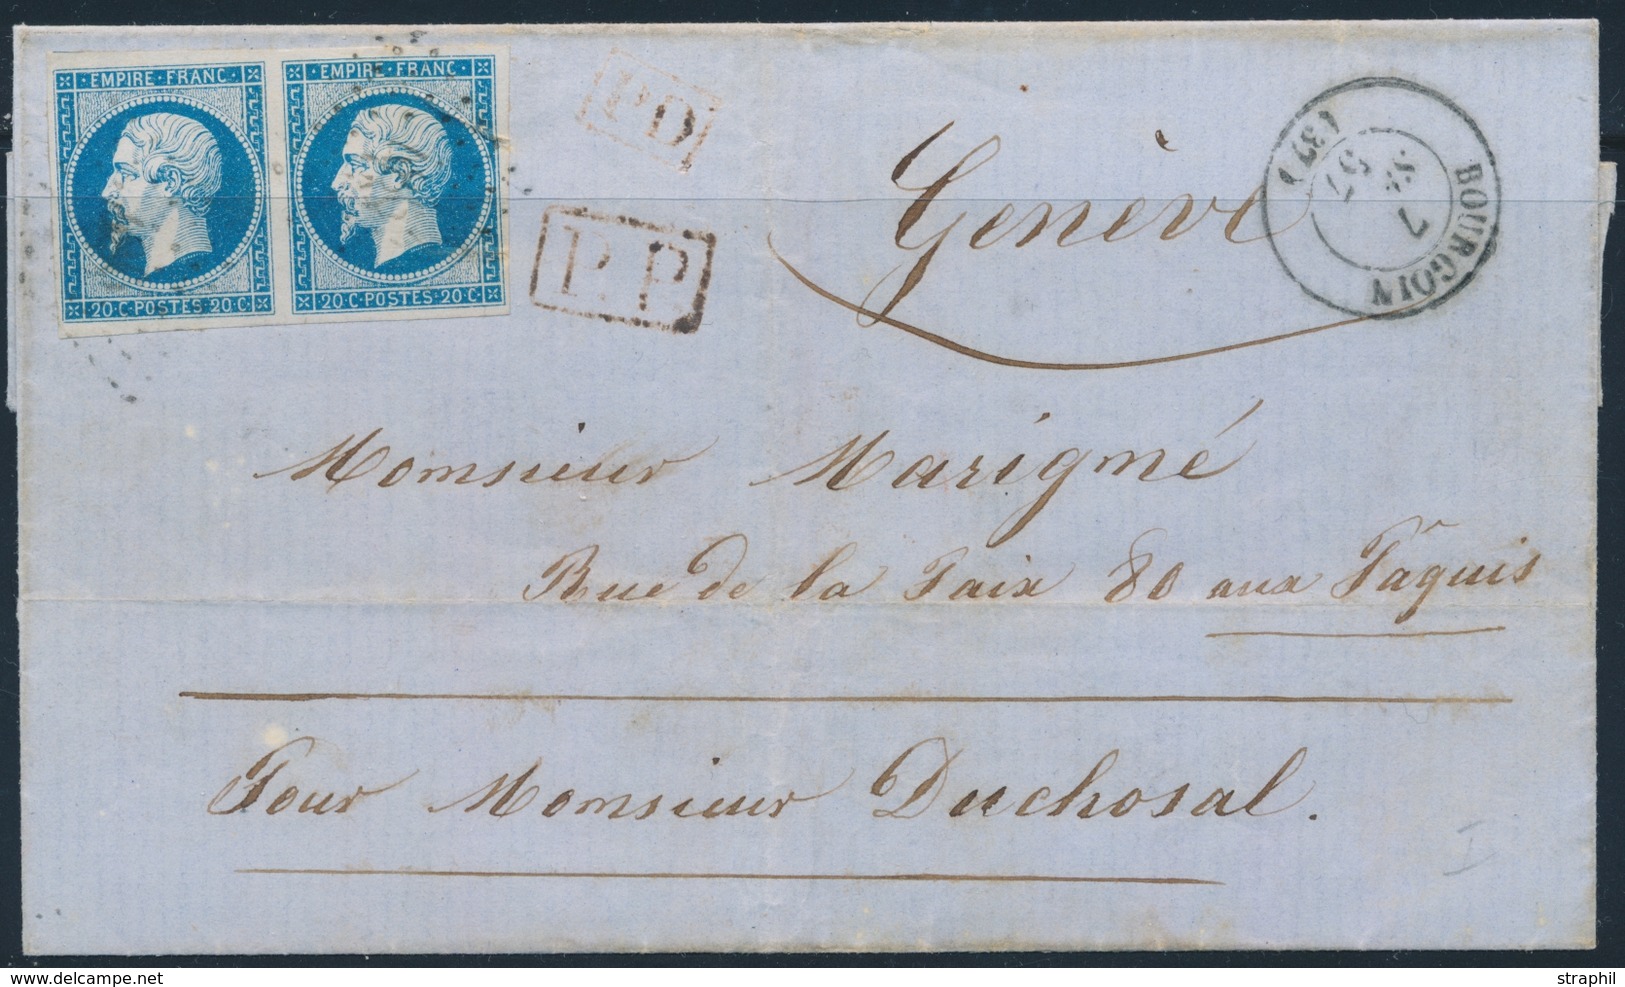 EMPIRE·FRANC· EMPIRE·FRANC·
20·C·POSTES·20·C· 20·C·POSTES·20·C·
PD
P.P.
BOURGOIN
7
57
(37)
Genève
Monsieur Marigné
Rue de la Paix 80 aux Pâquis
Pour Monsieur Duchosal.
I
delcampe.net
straphil